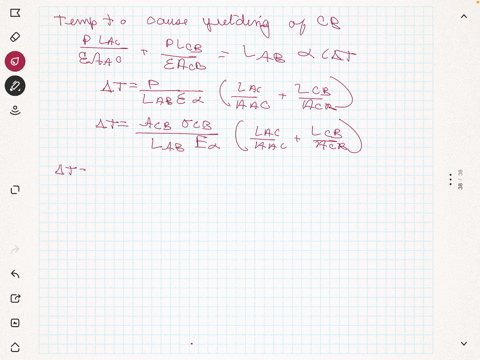 Temp to cause yielding of CB
P L_AC / E A_AC + P L_CB / E A_CB = L_AB α (ΔT
ΔT = P / L_AB E α ( L_AC / A_AC + L_CB / A_CB )
ΔT = A_CB σ_CB / L_AB E α ( L_AC / A_AC + L_CB / A_CB )
ΔT =